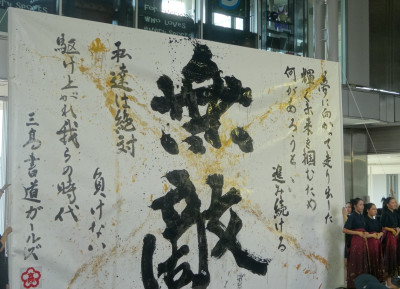 夢に向かって走り出した
輝く未来を掴むため
何があろうと
進み続ける
無敵
私達は絶対
負けない
駆け上がれ我らの時代
三島書道ガールズ